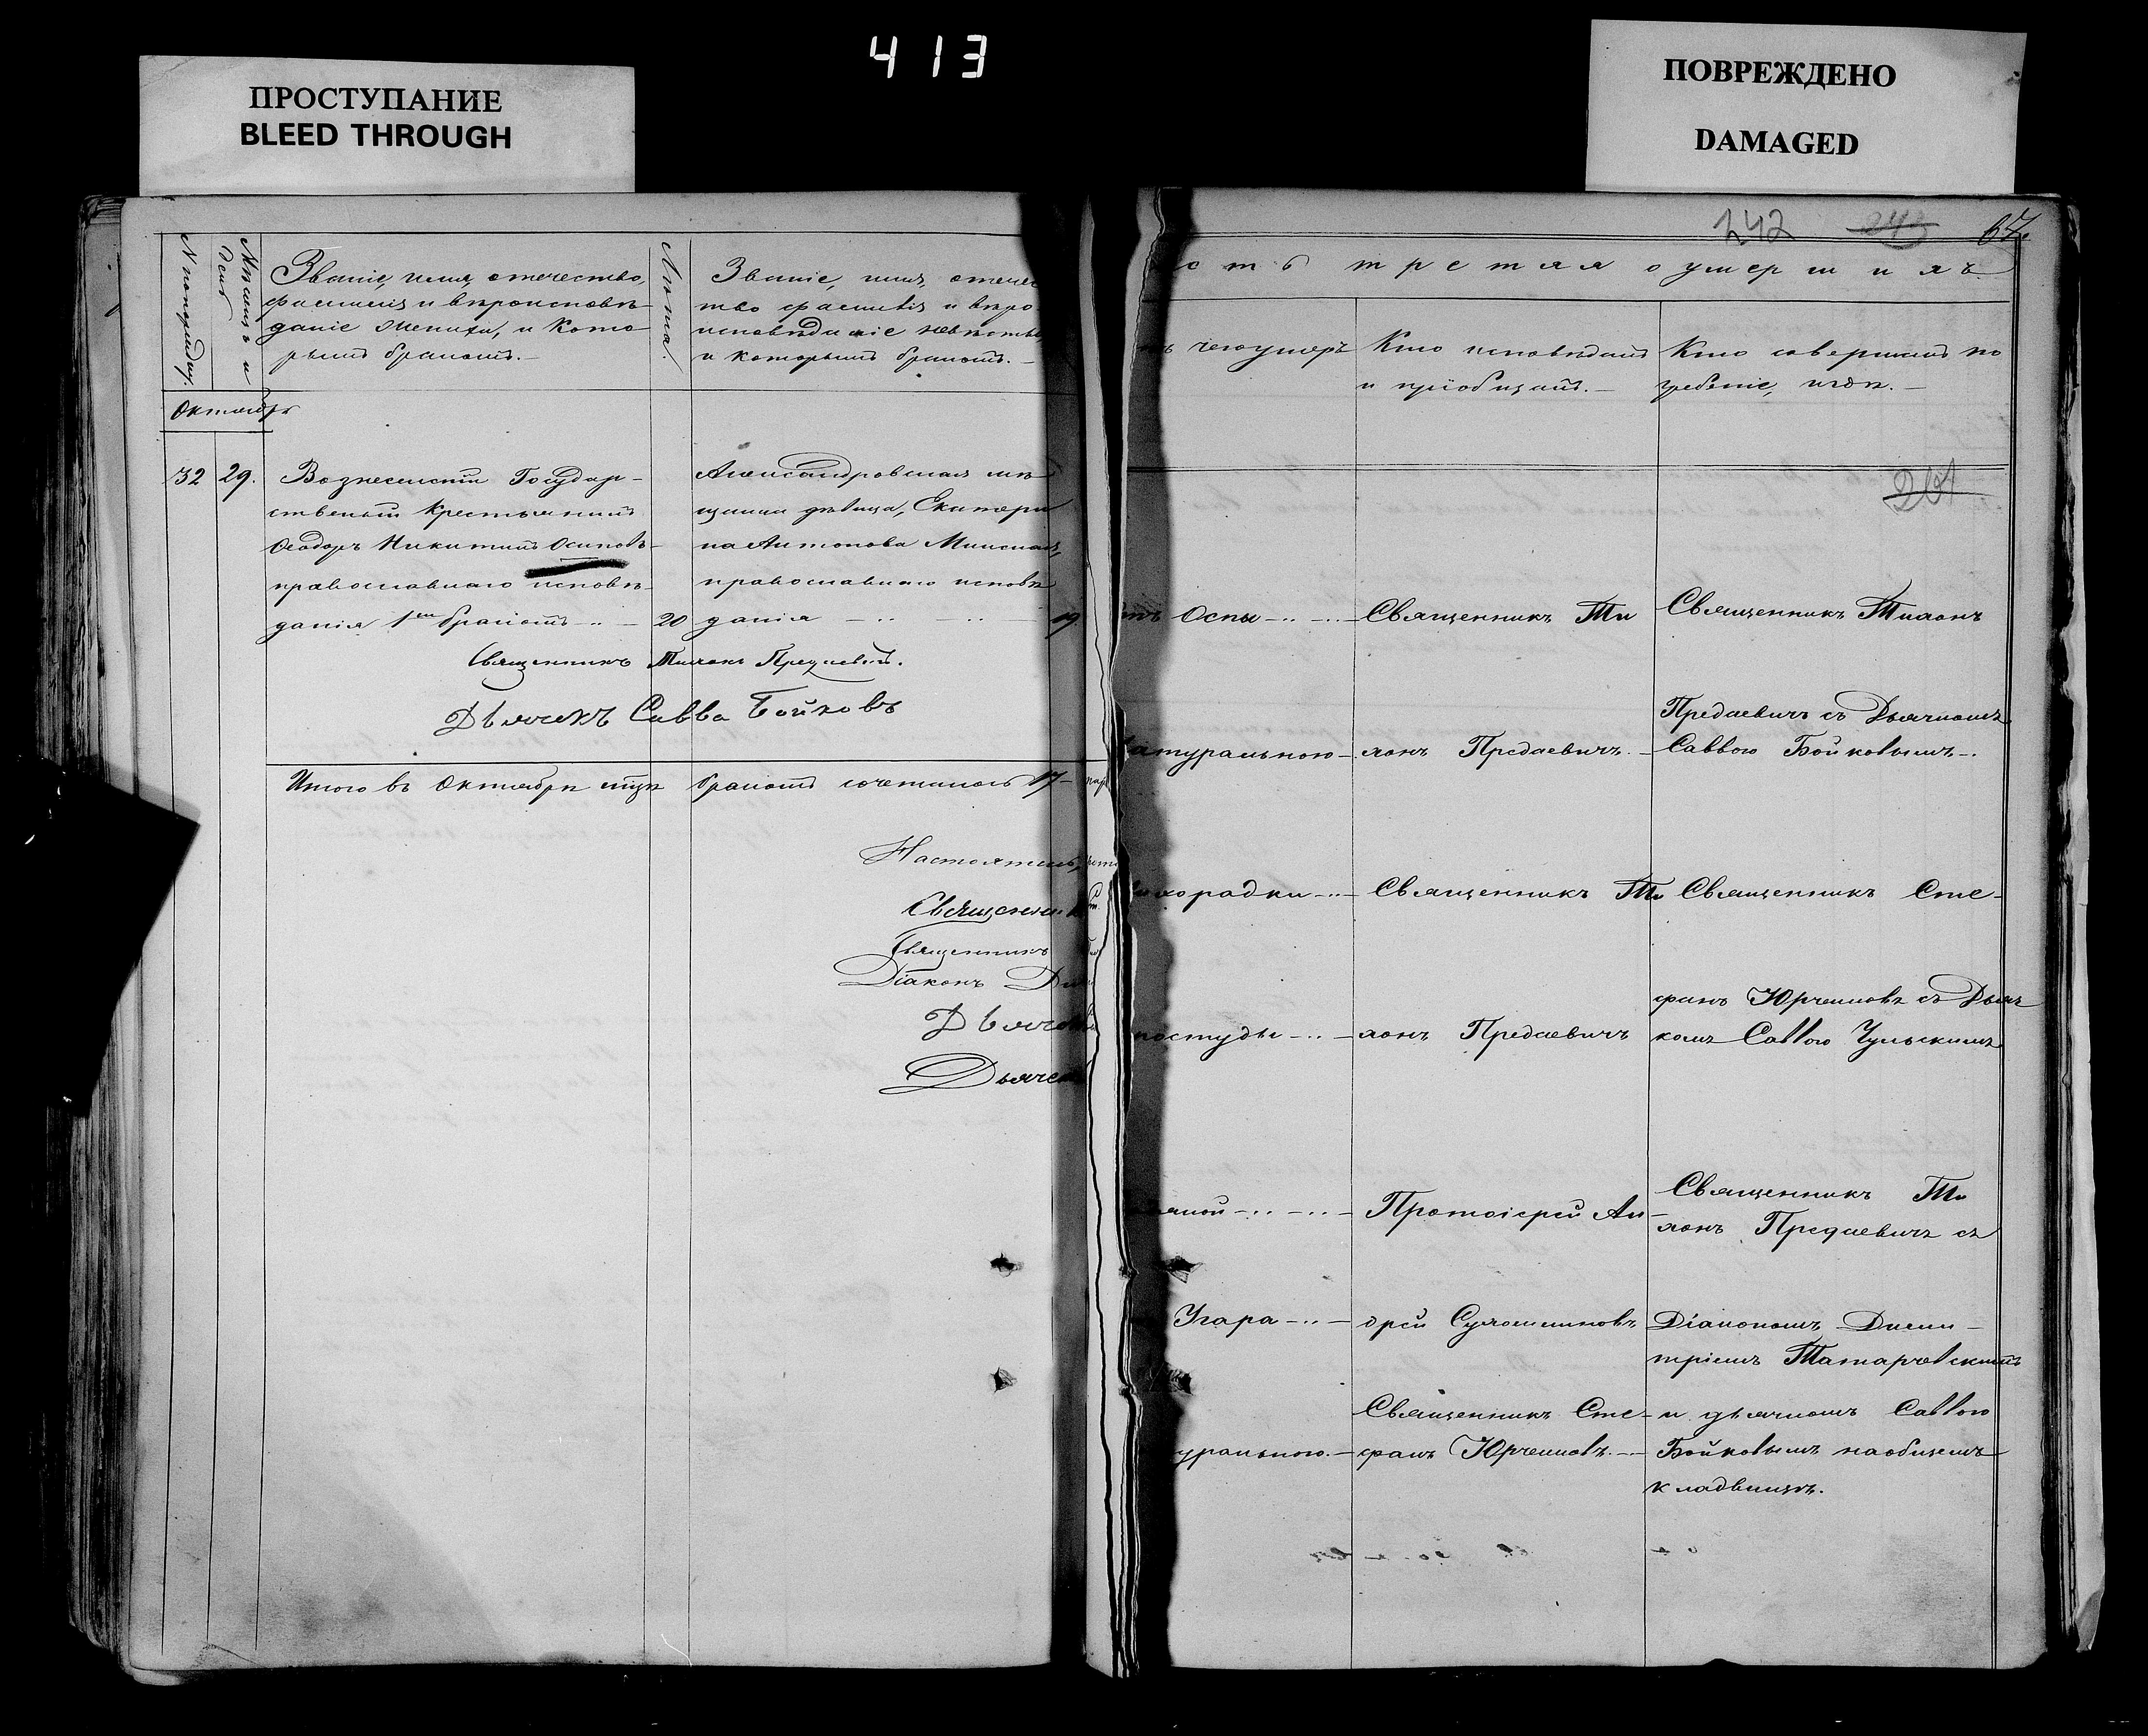 413
ПРОСТУПАНИЕ
BLEED THROUGH
ПОВРЕЖДЕНО
DAMAGED
N попорядку.
Мѣсяцъ и
день
Званіе, имя, отечество,
фамилія и вѣроисповѣ-
даніе жениха, и кото-
рымъ бракомъ.-
Лѣта.
Званіе, имя, отечес
тво фамилія и вѣро
исповѣданіе невѣсты
и которымъ бракомъ.-
Октябрь
32 29.
Вознесенскій Государ-
ственый крестьянинъ
Ѳеодоръ Никитинъ Осиповъ-
православнаго исповѣ-
данія 1мъ бракомъ -..- 20
Александровская мѣ
щанка дѣвица, Екатери
на Антонова Минская,
православнаго исповѣ
данія -..- -..- 19
Священникъ Тихонъ Предаевич.
Дьячекъ Савва Бойковъ
Итого въ Октябрѣ м-цѣ бракомъ сочеталось 17- пар
Настоятель,
Священник
Священникъ
Діаконъ
Дьяче
Дьячек
242 243 67.
сть третяя о умершихъ
чегоумеръ
Кто исповѣдалъ
и пріобщалъ.-
Кто совершалъ по
гребеніе, игдѣ.-
201
тъ Оспы -..-..-
Священникъ Ти
Священникъ Тихонъ
Предаевичъ съ Дьячкомъ
атуральною-
хонъ Предаевичъ.-
Саввою Бойковымъ-.
ихорадки-..-
Священникъ Ти
Священникъ Сте-
фанъ Юрченковъ съ Дьяч
ростуды-..-
хонъ Предаевичъ
комъ Саввою Чульскимъ
яной-..-..-
Протоіерей Ан-
Священникъ Ти
хонъ Предаевичъ съ
Угара-..-
дрей
Діакономъ Дими-
тріемъ Татарчевскимъ
Священникъ Сте-
и дьячкомъ Саввою
уральною.-
фанъ Юрченковъ.-..-
Бойковымъ наобщемъ
кладбищѣ.